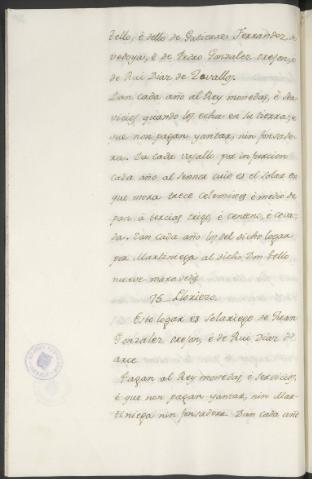 Tello, è dello de Gutierre Ferrandez de
vedoya, è de Pedro Gonzalez orejon, è
de Rui Diaz de Zovallos.
Dan cada año al Rey monedas, è ser
vicios quando los echa en su tierra, è
que non pagan yantar, nin fonsade
ra. Da cada vasallo por infurcion
cada año al Señor cuio es el Solar en
que mora trece celemines è medio de
pan à tercias trigo, è centeno, è ceva
da. Dan cada año los del dicho logar
por Martiniega al dicho Don Tello
nueve maravedis
75. Lloriezo.
Este logar es solariego de Ferran
Gonzalez orejon, è de Rui Diaz de
arce
Pagan al Rey monedas, è servicios,
è que non pagan yantar, nin Mar
tiniega nin fonsadera. Dan cada año